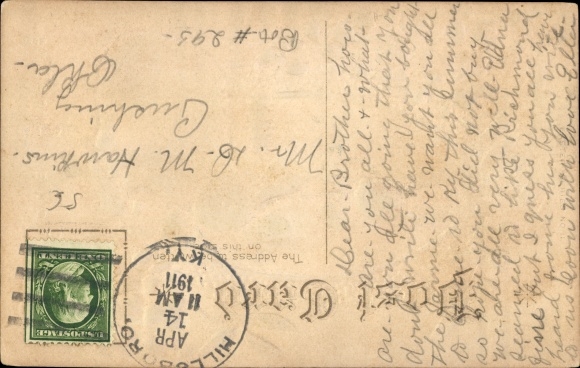 Post Card
The Address to be written
on this side
HILLSBORO,
KY.
APR
14
11 AM
1911
U.S. POSTAGE
Mr. D. M. Hawkins.
Cushing
Okla.
Box # 295-
Dear Brother how
are you all & what
are you all doing that you
dont write have you bought
the home we want you all
to come to Ky this summer
so if you did not buy
we are all very well
learned to like Richmond
fine but I guess you all have
heard from him you write
to us soon with love Ella